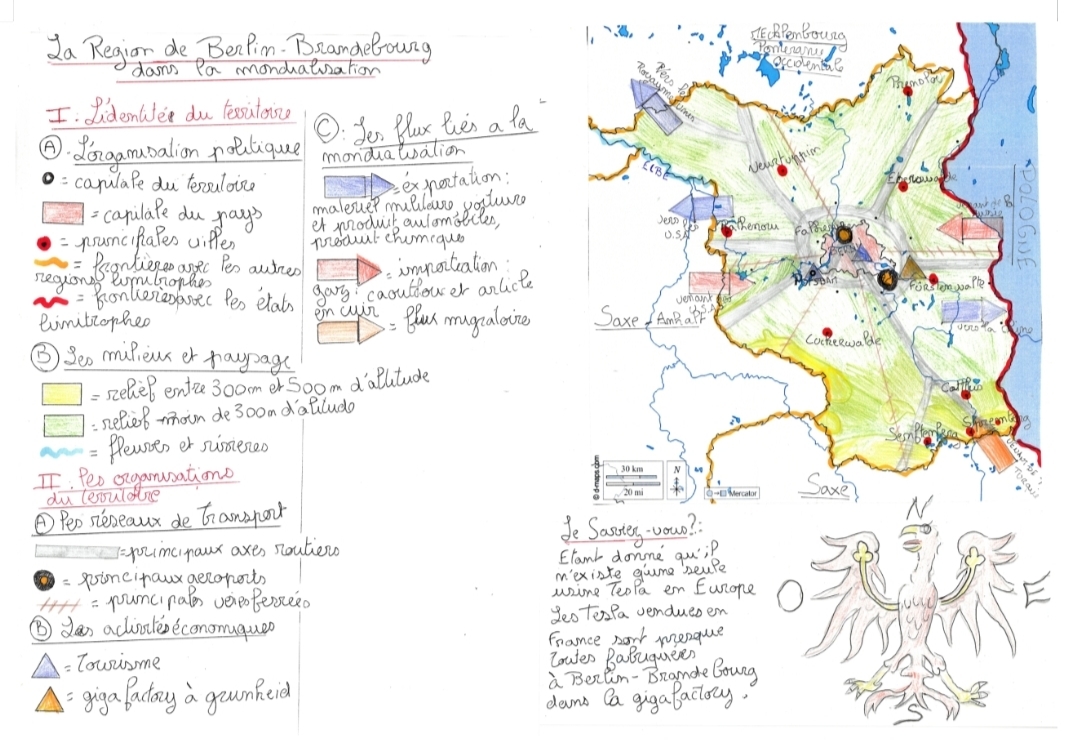 La Région de Berlin-Brandebourg
dans la mondialisation
I. L'identitée du territoire
A. L'organisation politique
= capitale du territoire
= capitale du pays
= principales villes
= frontières avec les autres
regions limitrophes
= frontieres avec les états
limitrophes
B Les milieux et paysage
= relief entre 300m et 500m d'altitude
= relief moin de 300m d'altitude
= fleuves et rivieres
II. Les organisations
du territoire
A Les réseaux de transport
= principaux axes routiers
= principaux aeroports
= principales voies ferrées
B Les activités économiques
= Tourisme
= giga factory à grunheid
C: Les flux liés a la
mondialisation
= éxportation:
materiel militaire voiture
et produit automobiles,
produit chimique
= importation:
gaz, caoutchouc et article
en cuir
= flux migratoire
Mecklembourg
Pomeranie
Occidentale
Vers le
Royaume Unis
Prenzlau
Neuruppin
Eberswalde
ELBE
POLOGNE
vers
U.S.A
Rathenow
Falkensee
Potsdam
Fürstenwalde
venant des
U.S.A
vers la Chine
Saxe-Anhalt
Luckenwalde
Cottbus
Spremberg
Senftenberg
Saxe
© d-maps.com
30 km
20 mi
N
Mercator
Le Saviez-vous?:
Etant donné qu'il
n'existe q'une seule
usine Tesla en Europe
Les Tesla vendues en
France sont presque
toutes fabriquées
à Berlin-Brandebourg
dans la gigafactory.
N
O
E
S